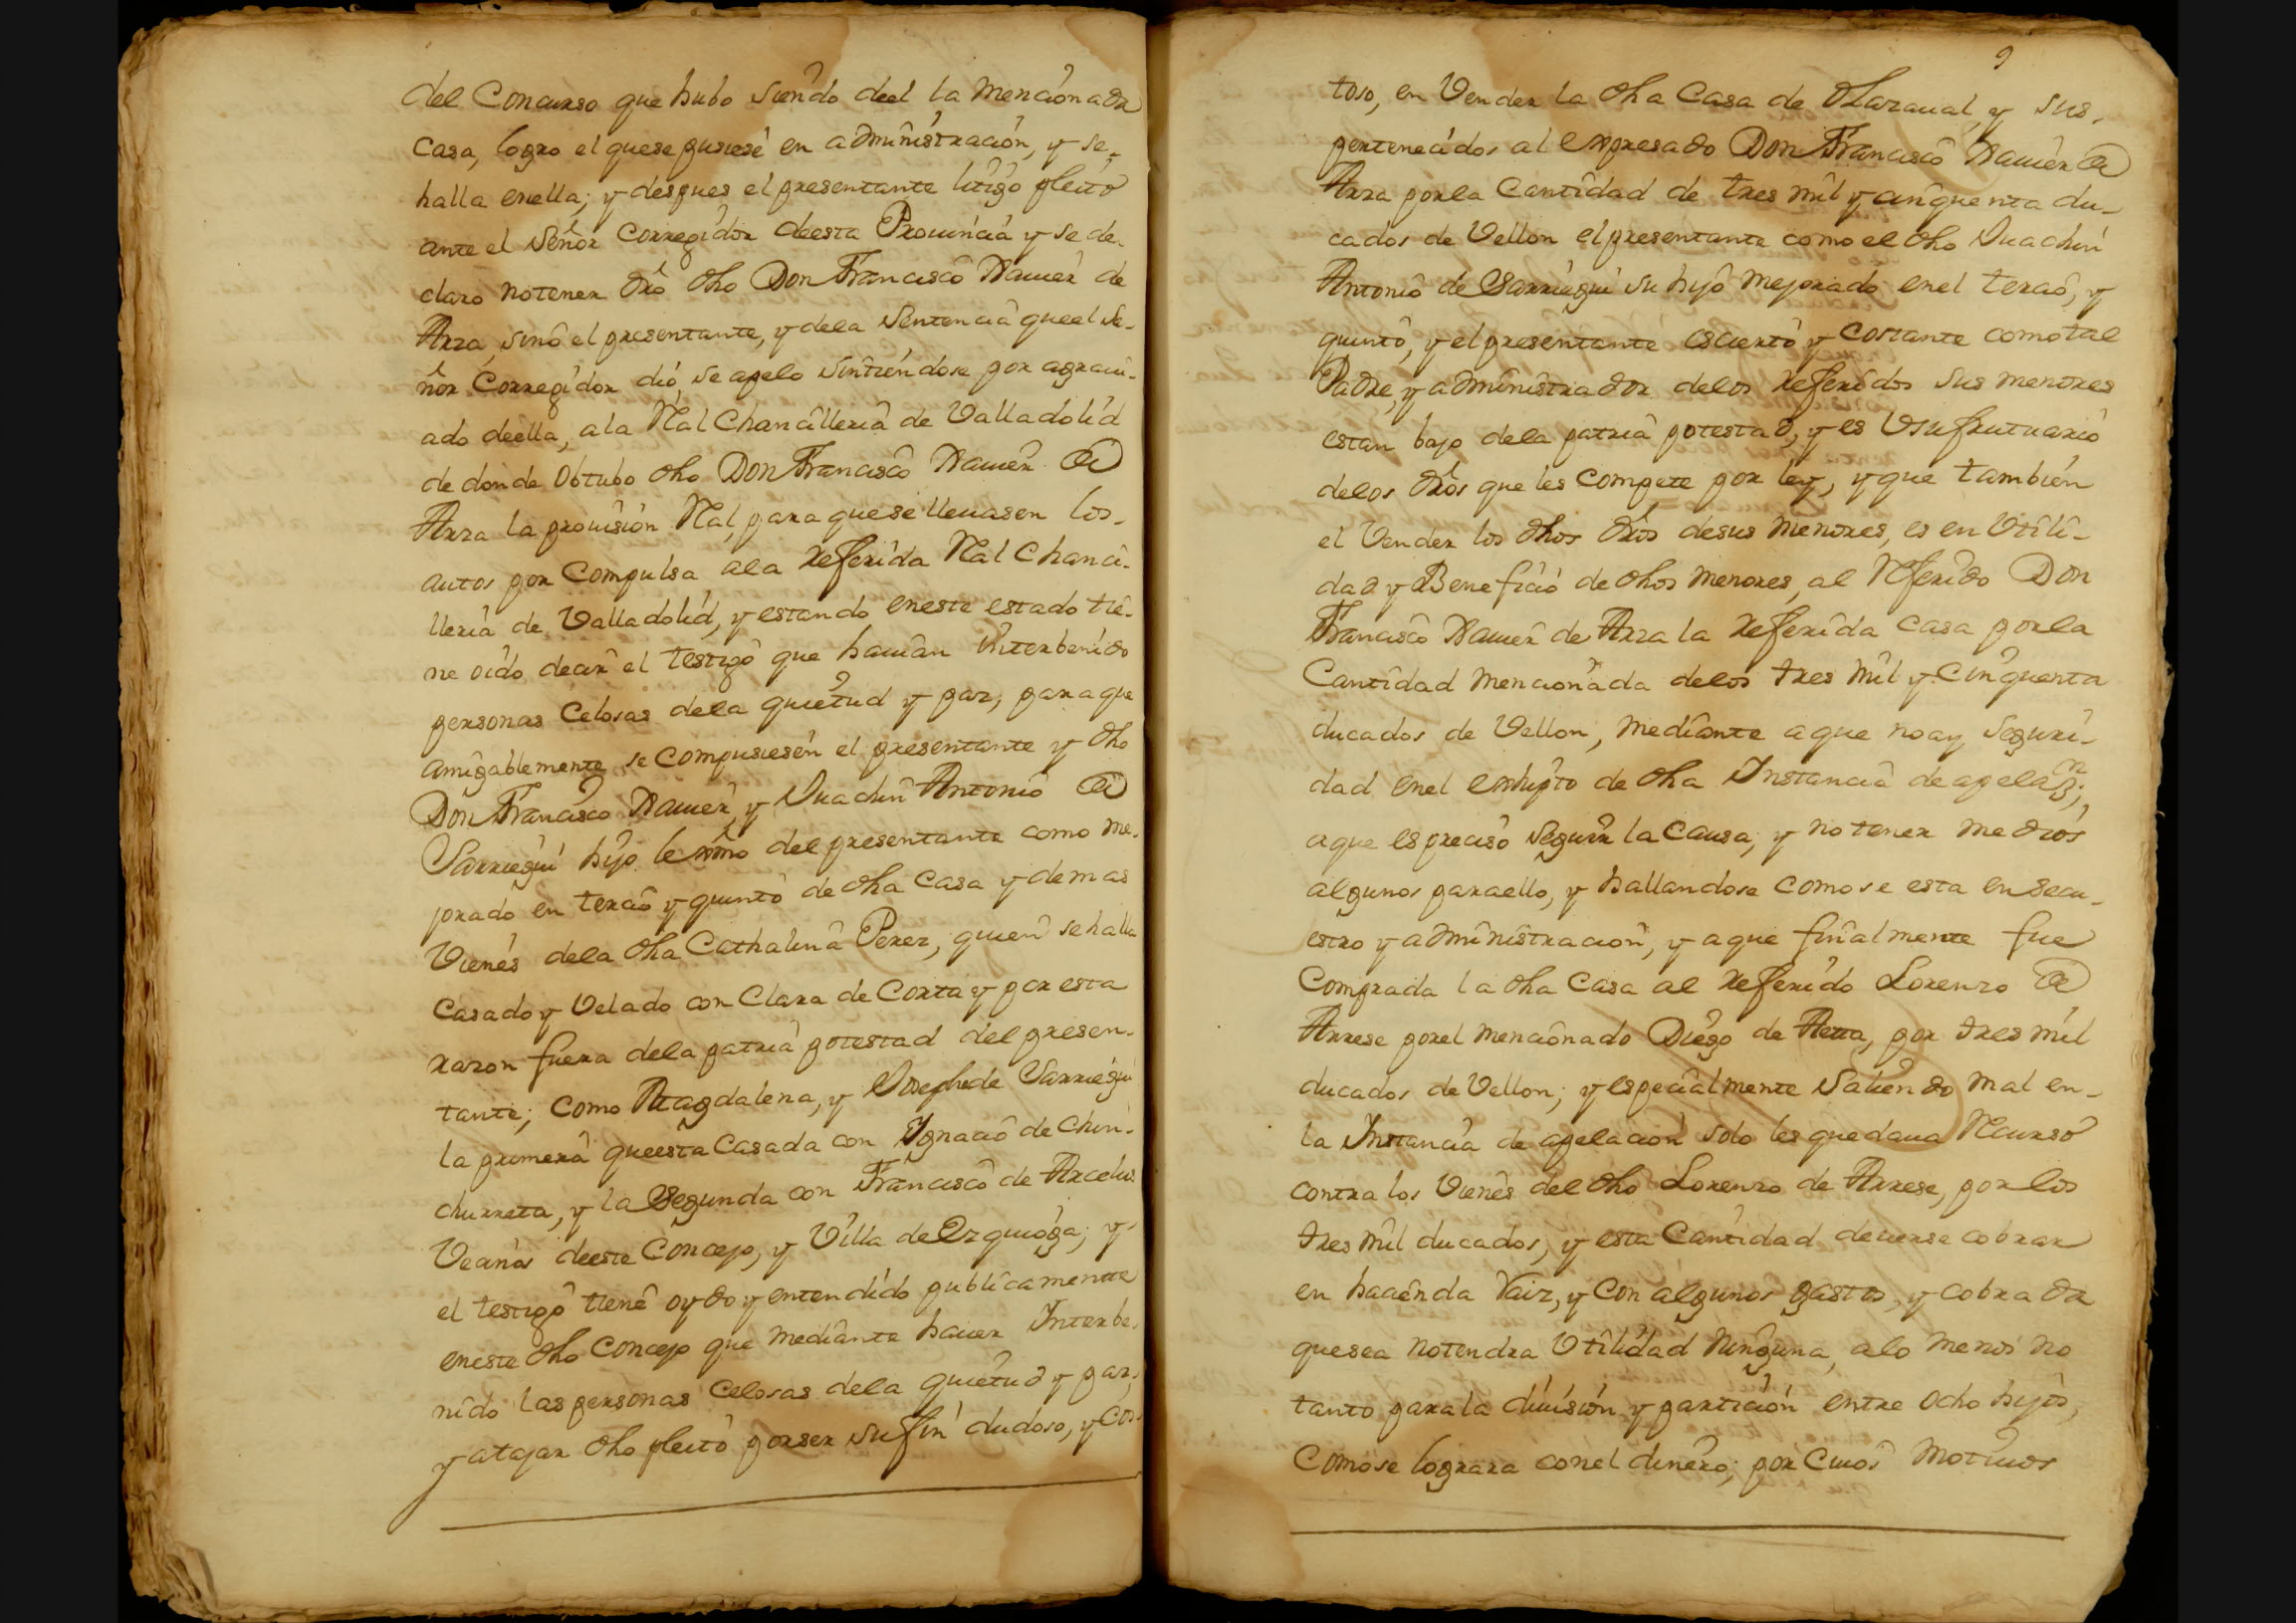 del Concurso que hubo siendo deel la mencionada
casa, logro el quese pusiese en administración, y se
halla enella; y despues el presentante litigo pleito
ante el Señor Corregidor deesta Prouincia y se de-
claro notener dró dho Don Francisco Xauier de
Arza, sino el presentante, y dela sentencia queel Se-
ñor Corregidor dió, se apelo sintiendose por agraui-
ado deella, ala Rl Chancilleria de Valladolid
de donde obtubo dho Don Francisco Xauier de
Arza la prouisión Rl, para quese lleuasen los
autos por Compulsa ala referida Rl Chanci-
lleria de Valladolid, y estando eneste estado tie-
ne oido decir el testigo que hauian interbenido
personas Celosas dela quietud y paz, para que
amigablemente se compusiesen el presentante y dho
Don Francisco Xauier, y Juachin Antonio de
Sarriegui hijo lexmo del presentante como me-
jorado en tercio y quinto de dha casa y demas
Vienes dela dha Cathalina Perez, quien sehalla
Casado y Velado con Clara de Corta y por esta
razon fuera dela patria potestad del presen-
tante; como Magdalena, y Josepha de Sarriegui
la primera queesta Casada con Ygnacio de Chin-
churreta, y la segunda con Francisco de Arcelus
Vecinos deeste Concejo, y Villa de Ezquioga; y
el testigo tiene oydo y entendido publicamente
eneste dho Concejo que mediante hauer Interbe-
nido las personas Celosas dela quietud y paz,
y atajar dho pleito porser su fin dudoso, y cos-
9
toso, en Vender la dha Casa de Olazaual, y sus
pertenecidos al expresado Don Francisco Xauier de
Arza porla Cantidad de tres mil y cinquenta du-
cados de Vellon el presentante como el dho Juachin
Antonio de Sarriegui su hijo mejorado enel tercio, y
quinto, y el presentante escierto y costante como tal
Padre, y administrador delos referidos sus menores
estan bajo dela patria potestad, y es Vsufrutuario
delos drós que les compete por ley, y que también
el Vender los dhos drós desus menores, es en Vtili-
dad y Beneficio de dhos menores, al Referido Don
Francisco Xauier de Arza la referida casa porla
Cantidad mencionada delos tres mil y cinquenta
ducados de Vellon, mediante aque noay seguri-
dad enel exhipto de dha Instancia de apelazn;
aque es preciso seguir la causa, y no tener medios
algunos paraello, y hallandose como se esta en secu-
estro y administracion, y aque finalmente fue
Comprada la dha Casa al referido Lorenzo de
Arrese porel mencionado Diego de Arza, por tres mil
ducados de Vellon; y especialmente saliendo mal en
la Instancia de apelacion solo les quedaua Recurso
contra los Vienes del dho Lorenzo de Arrese, por los
tres mil ducados, y esta Cantidad deuerse cobrar
en hacienda Raiz, y con algunos gastos, y cobrada
quesea notendra Vtilidad ninguna, alo menos no
tanto parala diuisión y partición entre ocho hijos,
Comose lograra conel dinero; por Cuios motiuos